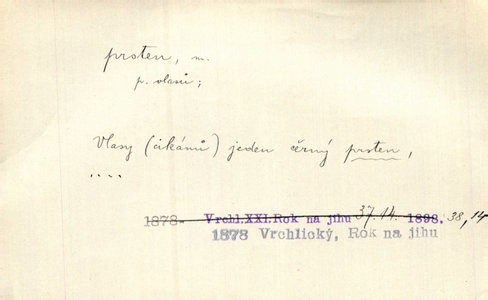 prsten, m.
p. vlasů;
Vlasy (cikánů) jeden černý prsten,
....
1878- Vrchl.XXI.Rok na jihu 37.14. 1898. 38,14
1878 Vrchlický, Rok na jihu